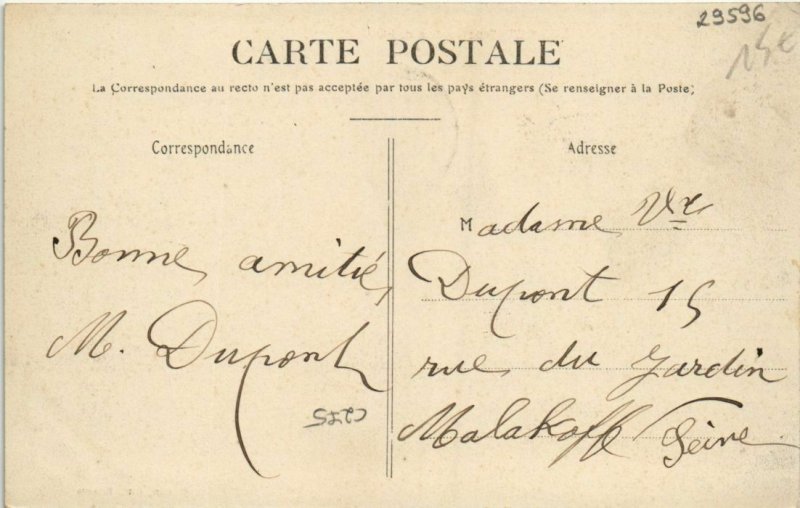 29596
15€
CARTE POSTALE
La Correspondance au recto n'est pas acceptée par tous les pays étrangers (Se renseigner à la Poste)
Correspondance
Bonne amitié
M. Dupont
Adresse
Madame Vve
Dupont 15
rue du Jardin
Malakoff Seine